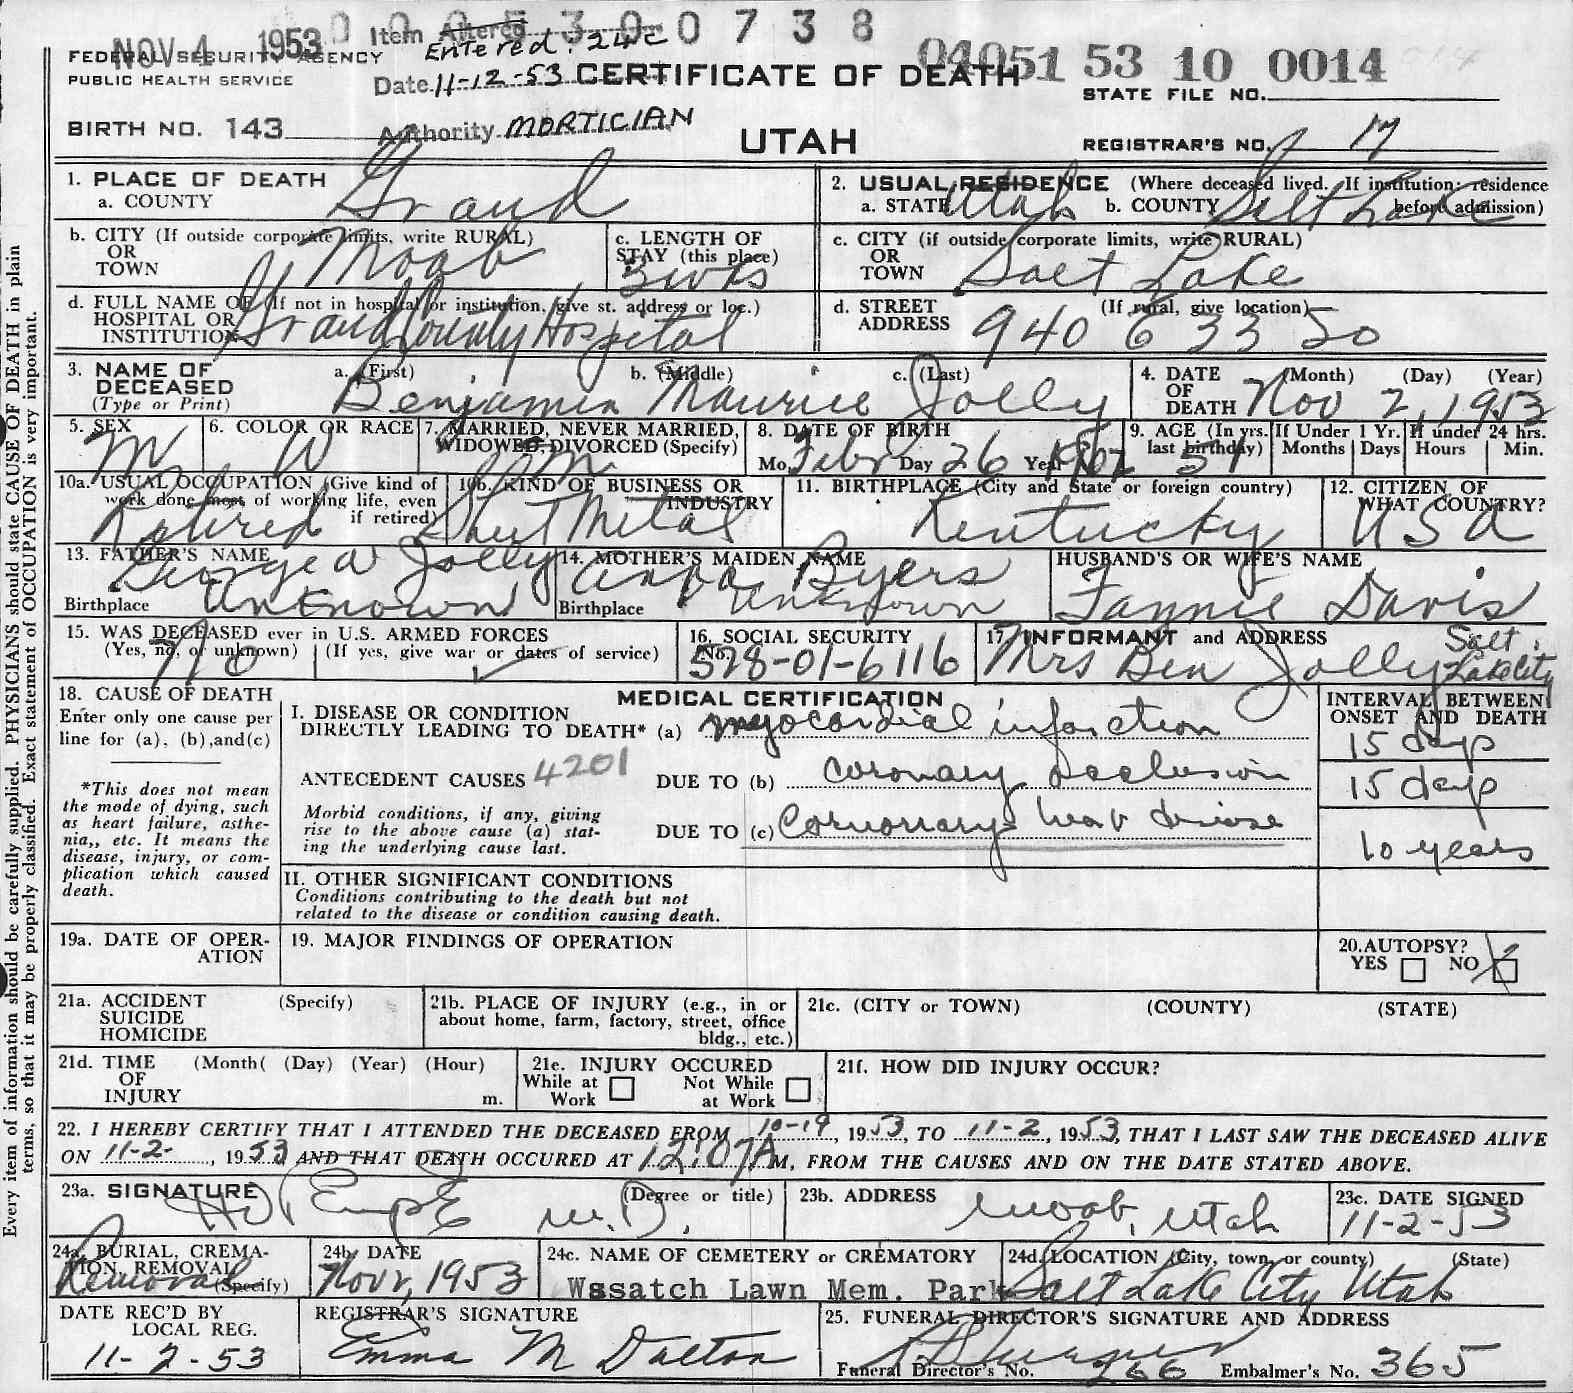 0 0 0 5 3 0 0 7 3 8
NOV 4 1953 Item Altered
Entered: 24c
04051 53 10 0014
FEDERAL SECURITY AGENCY
PUBLIC HEALTH SERVICE
Date 11-12-53 CERTIFICATE OF DEATH
STATE FILE NO.
BIRTH NO. 143 Authority MORTICIAN
UTAH
REGISTRAR'S NO. 17
1. PLACE OF DEATH
a. COUNTY Grand
2. USUAL RESIDENCE (Where deceased lived. If institution: residence before admission)
a. STATE Utah b. COUNTY Salt Lake
b. CITY (If outside corporate limits, write RURAL)
OR
TOWN Moab
c. LENGTH OF
STAY (this place)
3 wks
c. CITY (if outside corporate limits, write RURAL)
OR
TOWN Salt Lake
d. FULL NAME OF (If not in hospital or institution, give st. address or loc.)
HOSPITAL OR
INSTITUTION Grand County Hospital
d. STREET (If rural, give location)
ADDRESS 940 E 33 So
3. NAME OF
DECEASED
(Type or Print)
a. (First) b. (Middle) c. (Last)
Benjamin Maurice Jolly
4. DATE
OF
DEATH
(Month) (Day) (Year)
Nov 2, 1953
5. SEX
M
6. COLOR OR RACE
W
7. MARRIED, NEVER MARRIED,
WIDOWED, DIVORCED (Specify)
M
8. DATE OF BIRTH
Mo. Feb Day 26 Year 1902
9. AGE (In yrs.
last birthday) 51
If Under 1 Yr.
Months Days
If under 24 hrs.
Hours Min.
10a. USUAL OCCUPATION (Give kind of
work done most of working life, even
if retired)
Retired
10b. KIND OF BUSINESS OR
INDUSTRY
Sheet Metal
11. BIRTHPLACE (City and State or foreign country)
Kentucky
12. CITIZEN OF
WHAT COUNTRY?
USA
13. FATHER'S NAME
George W Jolly
Birthplace Unknown
14. MOTHER'S MAIDEN NAME
Anna Byers
Birthplace Unknown
HUSBAND'S OR WIFE'S NAME
Fannie Davis
15. WAS DECEASED ever in U.S. ARMED FORCES
(Yes, no, or unknown) (If yes, give war or dates of service)
No
16. SOCIAL SECURITY
No.
528-01-6116
17. INFORMANT and ADDRESS
Mrs Ben Jolly Salt Lake City
18. CAUSE OF DEATH
Enter only one cause per
line for (a), (b),and(c)
*This does not mean
the mode of dying, such
as heart failure, asthe-
nia,, etc. It means the
disease, injury, or com-
plication which caused
death.
MEDICAL CERTIFICATION
I. DISEASE OR CONDITION
DIRECTLY LEADING TO DEATH* (a) myocardial infarction
ANTECEDENT CAUSES 4201 DUE TO (b) coronary occlusion
Morbid conditions, if any, giving
rise to the above cause (a) stat-
ing the underlying cause last.
DUE TO (c) Coronary heart disease
INTERVAL BETWEEN
ONSET AND DEATH
15 days
15 days
10 years
II. OTHER SIGNIFICANT CONDITIONS
Conditions contributing to the death but not
related to the disease or condition causing death.
19a. DATE OF OPER-
ATION
19. MAJOR FINDINGS OF OPERATION
20.AUTOPSY?
YES NO X
21a. ACCIDENT (Specify)
SUICIDE
HOMICIDE
21b. PLACE OF INJURY (e.g., in or
about home, farm, factory, street, office
bldg., etc.)
21c. (CITY or TOWN) (COUNTY) (STATE)
21d. TIME (Month( (Day) (Year) (Hour)
OF
INJURY m.
21e. INJURY OCCURED
While at Not While
Work at Work
21f. HOW DID INJURY OCCUR?
22. I HEREBY CERTIFY THAT I ATTENDED THE DECEASED FROM 10-19, 1953, TO 11-2, 1953, THAT I LAST SAW THE DECEASED ALIVE
ON 11-2-, 1953 AND THAT DEATH OCCURED AT 12:07A M, FROM THE CAUSES AND ON THE DATE STATED ABOVE.
23a. SIGNATURE (Degree or title)
M.D.
23b. ADDRESS
Moab, Utah
23c. DATE SIGNED
11-2-53
24a. BURIAL, CREMA-
TION, REMOVAL
(Specify)
Removal
24b. DATE
Nov 2, 1953
24c. NAME OF CEMETERY or CREMATORY
Wssatch Lawn Mem. Park
24d. LOCATION (City, town, or county) (State)
Salt Lake City Utah
DATE REC'D BY
LOCAL REG.
11-2-53
REGISTRAR'S SIGNATURE
Emma M Dalton
25. FUNERAL DIRECTOR'S SIGNATURE AND ADDRESS
Funeral Director's No. 266 Embalmer's No. 365
Every item of information should be carefully supplied. PHYSICIANS should state CAUSE OF DEATH in plain
terms, so that it may be properly classified. Exact statement of OCCUPATION is very important.